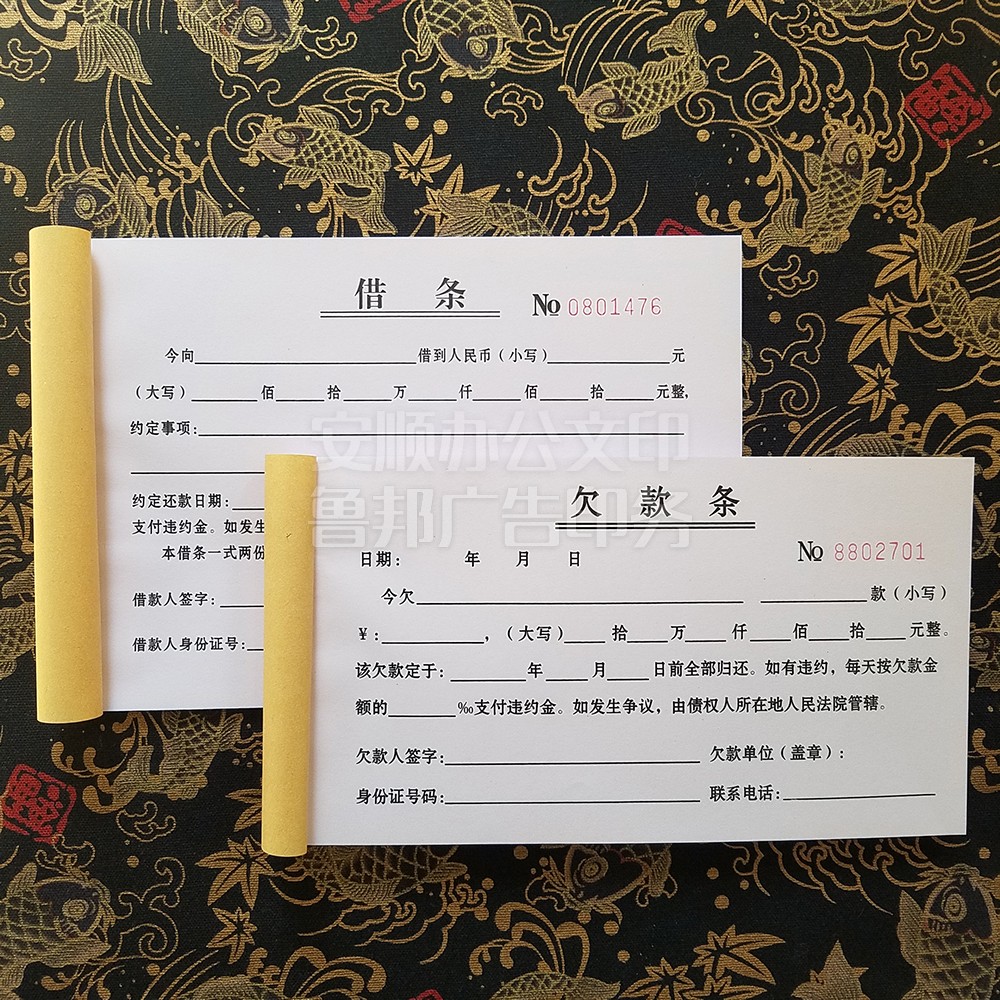 借 条
No 0801476
今向____________借到人民币（小写）____________元
（大写）____佰____拾____万____仟____佰____拾____元整，
约定事项：____________
约定还款日期：
支付违约金。如发生
本借条一式两份
借款人签字：
借款人身份证号：
欠 款 条
No 8802701
日期： 年 月 日
今欠____________ ________款（小写）
￥：________，（大写）____拾____万____仟____佰____拾____元整。
该欠款定于：______年____月____日前全部归还。如有违约，每天按欠款金
额的______‰支付违约金。如发生争议，由债权人所在地人民法院管辖。
欠款人签字：____________ 欠款单位（盖章）：
身份证号码：____________ 联系电话：____________
安顺办公文印
鲁邦广告印务